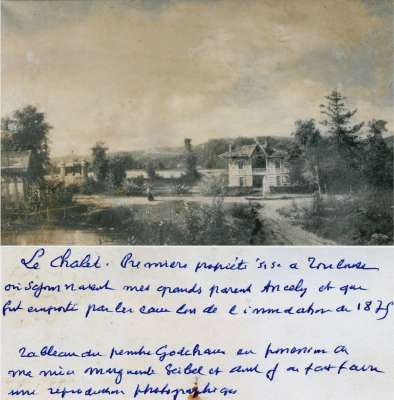 Le Chalet. Première propriété sise a Toulouse
où séjournaient mes grands parent Ancely et qui
fut emporté par les eaux lors de l'inondation de 1875
Tableau du peintre Godchaux en possession de
ma nièce marguerite Seibel et dont j'ai fait faire
une reproduction photographique